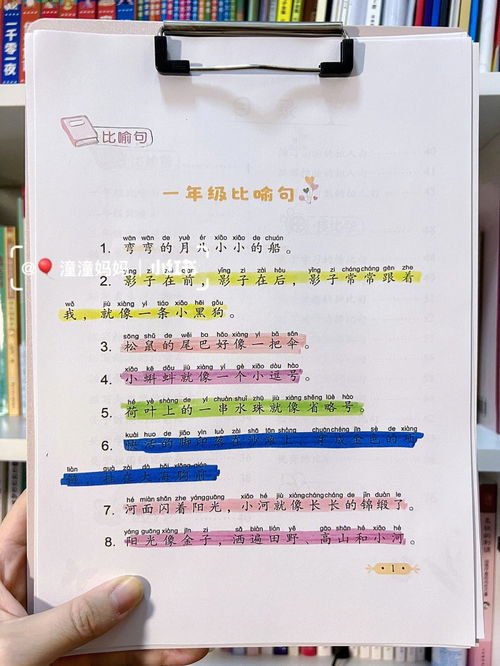 一千零一夜
比喻句
一年级比喻句
wān wān de yuè ér xiǎo xiǎo de chuán
1. 弯弯的月儿小小的船。
yǐng zi zài qián yǐng zi zài hòu yǐng zi cháng cháng gēn zhe
2. 影子在前，影子在后，影子常常跟着
@ 潼潼妈妈 | 小红书
wǒ jiù xiàng yì tiáo xiǎo hēi gǒu
我，就像一条小黑狗。
sōng shǔ de wěi ba hǎo xiàng yì bǎ sǎn
3. 松鼠的尾巴好像一把伞。
xiǎo kē dǒu jiù xiàng yí gè xiǎo dòu hào
4. 小蝌蚪就像一个小逗号。
hé yè shàng de yí chuàn shuǐ zhū jiù xiàng shěng lüè hào
5. 荷叶上的一串水珠就像省略号。
kuài huo de jiǎo yìn luò zài shā tān shàng chuàn chéng jīn sè de xiàng
6. 的脚印落在沙滩上，串成金色的项
liàn guà zài dà hǎi xiōng qián
挂在大海胸前
hé miàn shǎn zhe yáng guāng xiǎo hé jiù xiàng cháng cháng de jǐn duàn le
7. 河面闪着阳光，小河就像长长的锦缎了。
yáng guāng xiàng jīn zi sǎ biàn tián yě gāo shān hé xiǎo hé
8. 阳光像金子，洒遍田野、高山和小河。
1